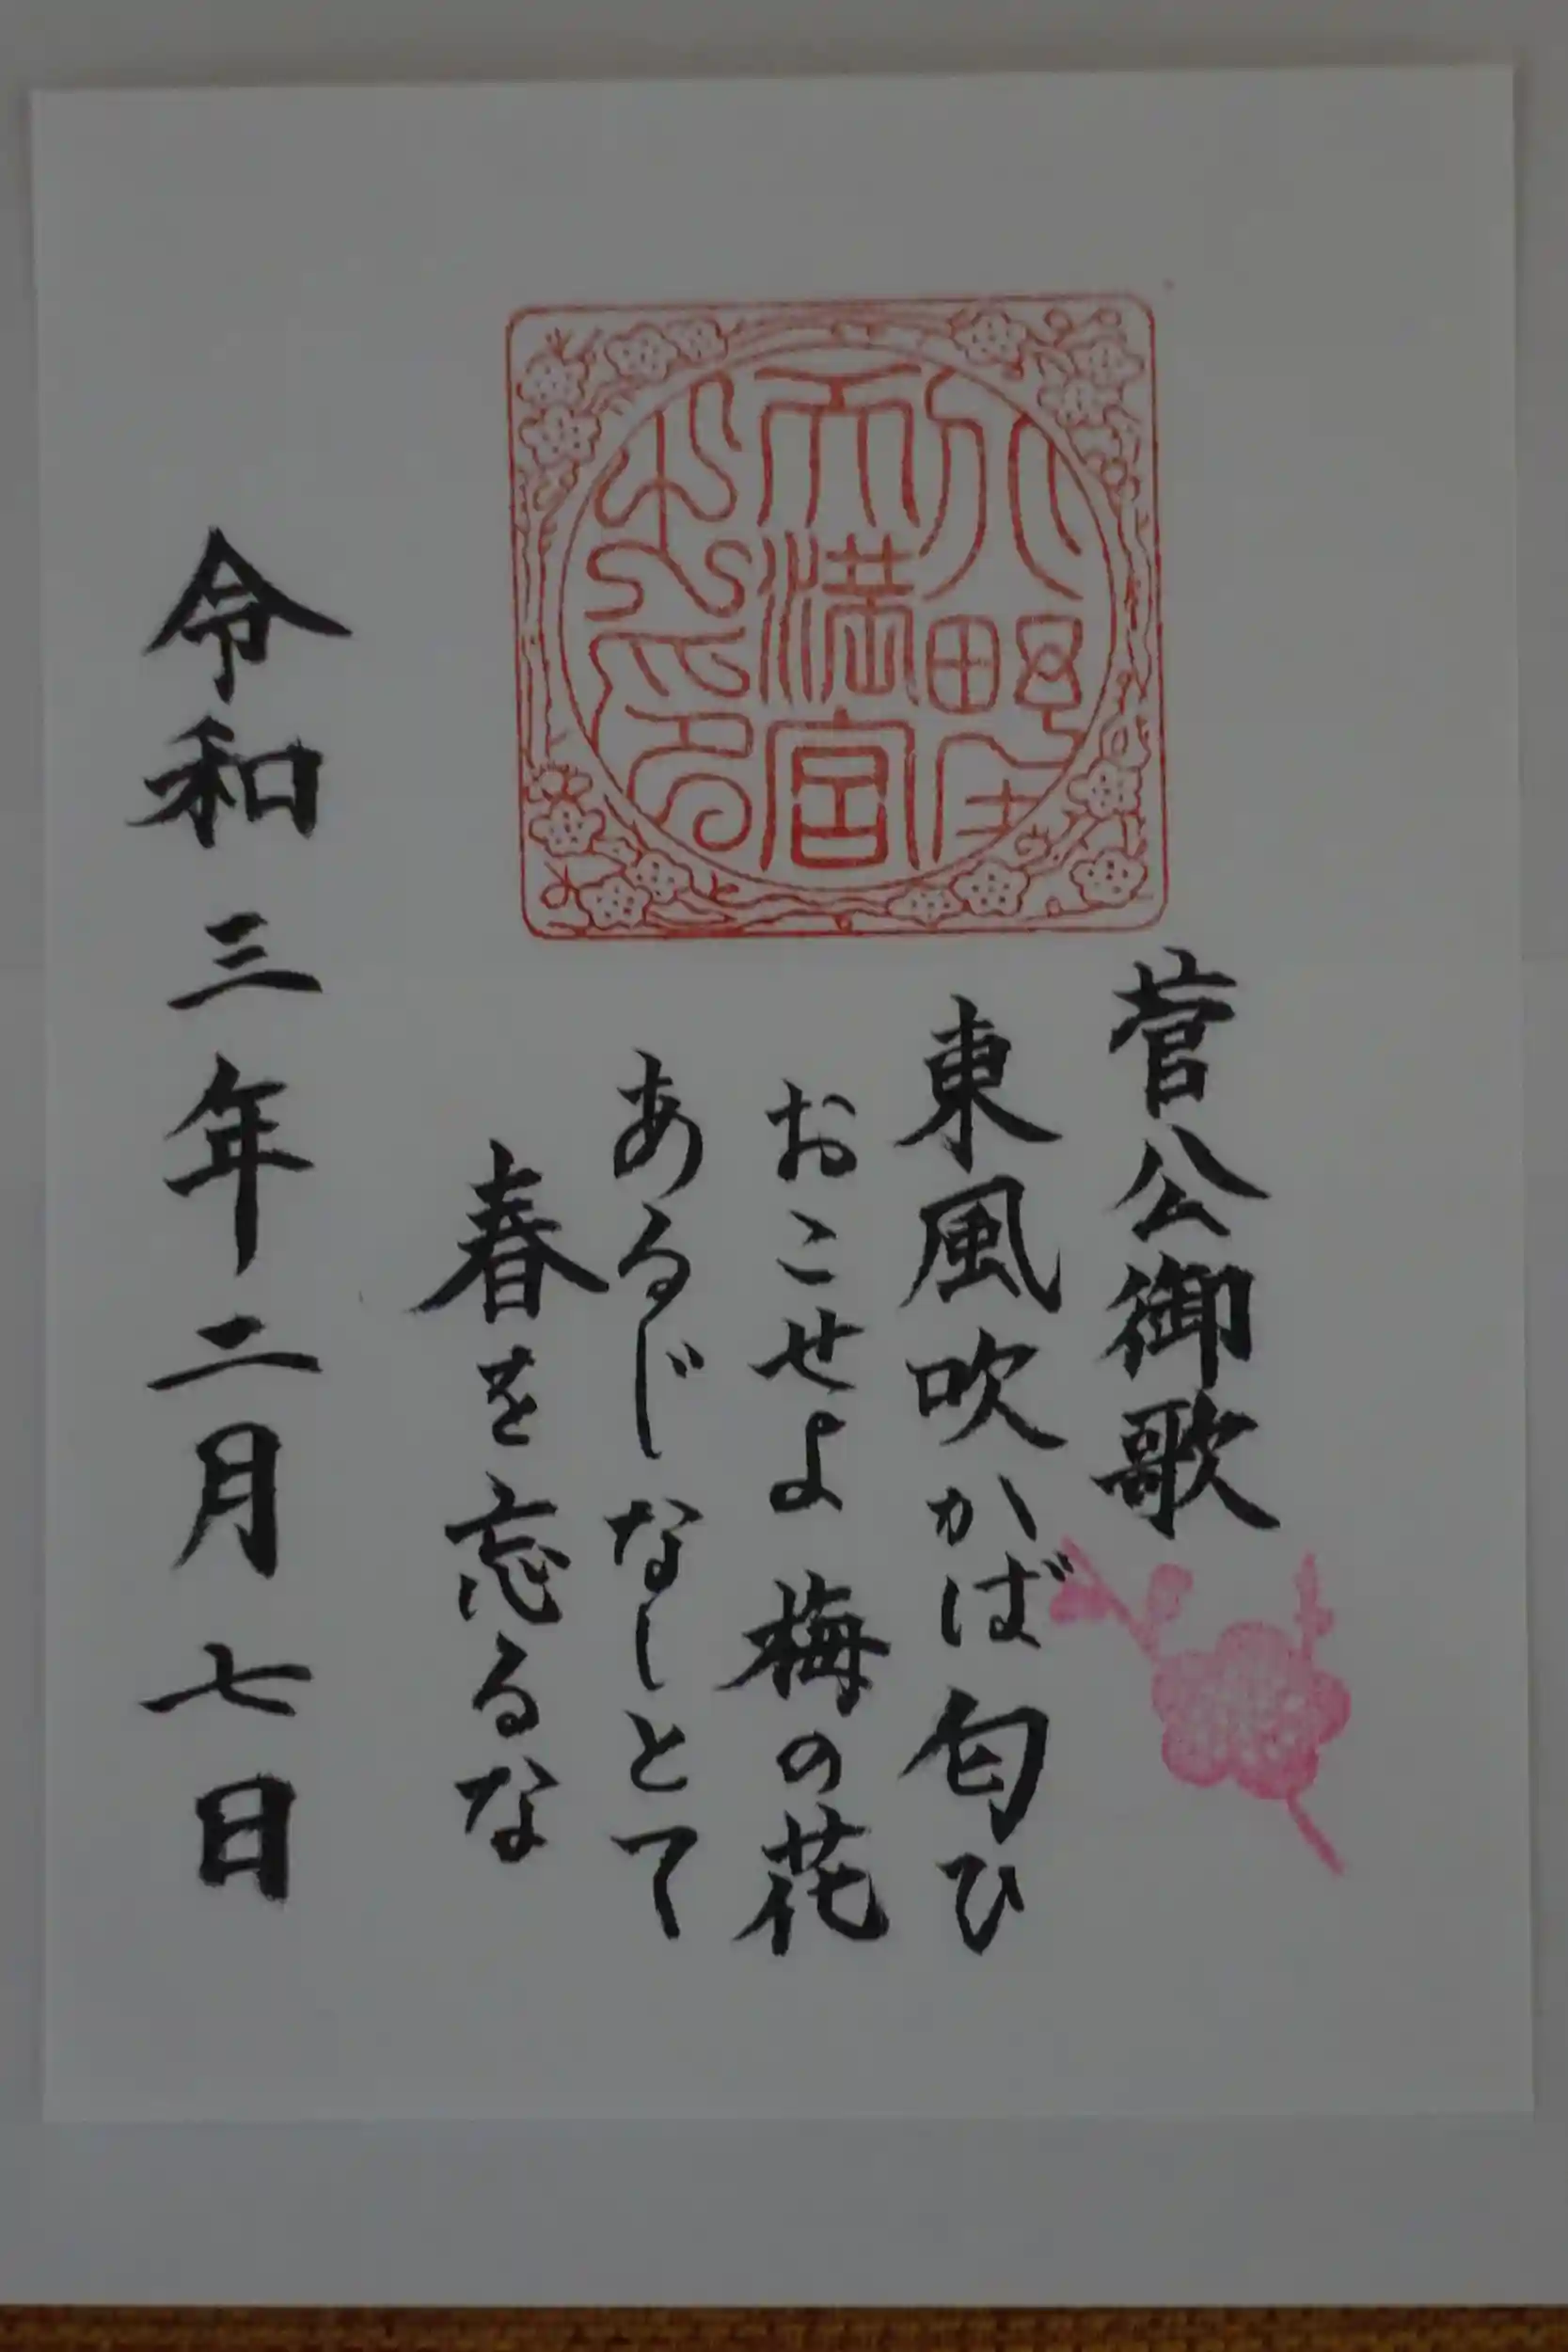 天満宮
菅公御歌
東風吹かば匂ひ
おこせよ梅の花
あるじなしとて
春を忘るな
令和三年二月七日